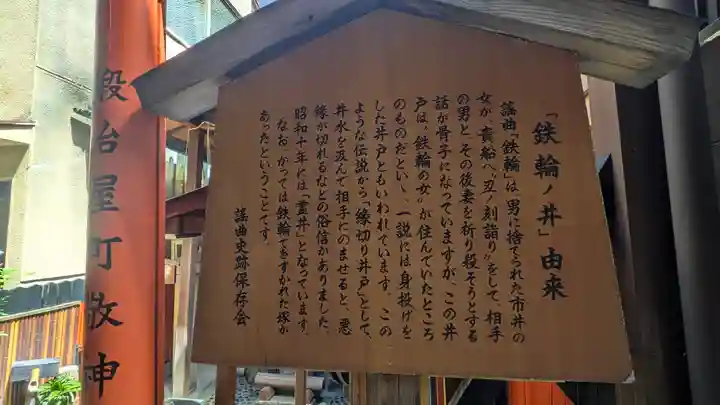 「鉄輪ノ井」由来
謡曲『鉄輪』は、男に捨てられた市井の
女が、貴船へ〝丑ノ刻詣り〟をして、相手
の男と、その後妻を祈り殺そうとする
話が骨子になっていますが、この井
戸は、〝鉄輪の女〟が住んでいたところ
のものだといゝ、一説には身投げを
した井戸ともいわれています。この
ような伝説から「縁切り井戸」として、
井水を汲んで相手にのませると、悪
縁が切れるなどの俗信がありました。
昭和十年には「霊井」となっています。
なお、かっては鉄輪てをすかれた塚が
あったということです。
謡曲史跡保存会
鍛冶屋町敬神